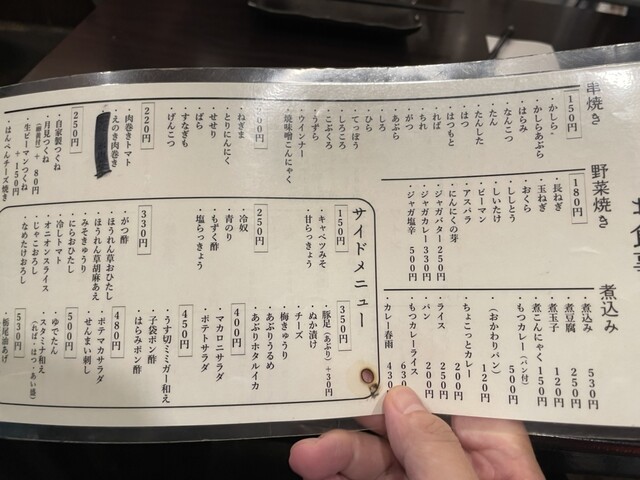 串焼き
150円
・かしら
・かしらあぶら
・はらみ
・なんこつ
・たんした
・たん
・はつ
・はつもと
・れば
・ちれ
・がつ
・あぶら
・しろ
・ひら
・てっぽう
・しろころ
・こぶくろ
・うずら
・ウインナー
・焼味噌こんにゃく
00円
・ねぎま
・とりにんにく
・せせり
・ぱら
・すなぎも
・げんこつ
220円
・肉巻きトマト
・えのき肉巻き
250円
・自家製つくね
・月見つくね
(卵黄付) + 80円
・生ピーマンつくね
+ 150円
・はんぺんチーズ焼き
野菜焼き
180円
・長ねぎ
・玉ねぎ
・おくら
・ししとう
・しいたけ
・ピーマン
・アスパラ
・にんにくの芽
・ジャガバター 250円
・ジャガカレー 330円
・ジャガ塩辛 500円
煮込み
・煮込み 530円
・煮豆腐 250円
・煮玉子 120円
・煮こんにゃく 150円
・もつカレー(パン付) 500円
(おかわりパン) 120円
・ちょこっとカレー 200円
・ライス 250円
・パン 200円
・もつカレーライス 630
・カレー春雨 430
サイドメニュー
150円
・キャベツみそ
・甘らっきょう
250円
・冷奴
・青のり
・もずく酢
・塩らっきょう
330円
・がつ酢
・ほうれん草おひたし
・ほうれん草胡麻あえ
・みそきゅうり
・にらおひたし
・冷しトマト
・オニオンスライス
・じゃこおろし
・なめたけおろし
350円
・豚足(あぶり)+30円
・ぬか漬け
・チーズ
・梅きゅうり
・あぶりうるめ
・あぶりホタルイカ
400円
・マカロニサラダ
・ポテトサラダ
450円
・うす切ミミガー和え
・子袋ポン酢
・はらみポン酢
480円
・ポチマカサラダ
・せんまい刺し
500円
・ゆでたん
・スタミナ和え
(れば・はつ・あい盛)
530円
・栃尾油あげ